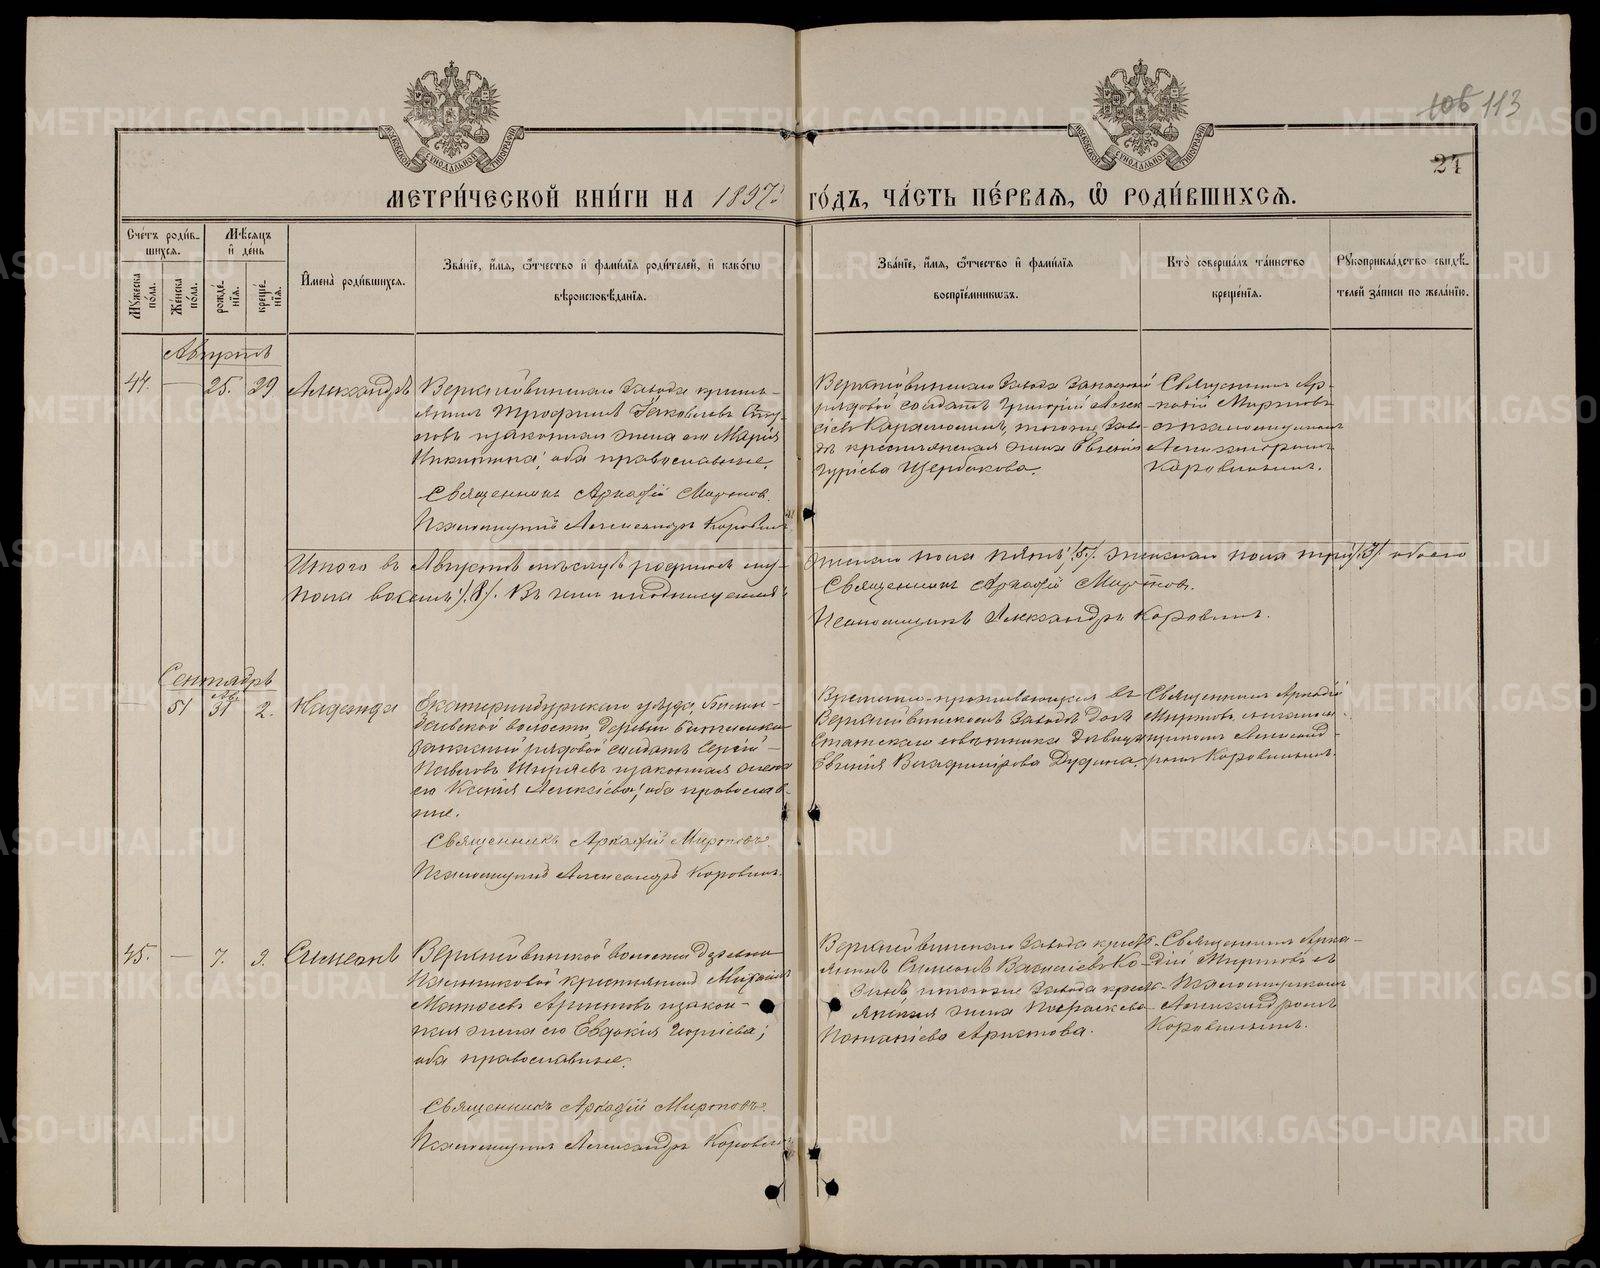 106 113
24
МОСКОВСКОЙ СѴНОДАЛЬНОЙ ТИПОГРАФІИ
МОСКОВСКОЙ СѴНОДАЛЬНОЙ ТИПОГРАФІИ
МЕТРИ́ЧЕСКОЙ КНИ́ГИ НА 1897. ГО́ДЪ, ЧА́СТЬ ПЕ́РВАЯ, Ѡ҆ РОДИ́ВШИХСЯ.
Сче́тъ роди́в-
шихся.
Мѣ́сяцъ
и҆ де́нь
Му́жеска по́ла.
Же́нска по́ла.
рожде́-
нїя.
креще́-
нїя.
И҆мена̀ роди́вшихся.
Зва́нїе, и҆́мя, ѻ҆́тчество и҆ фами́лїя роди́телей, и҆ како́гѡ
вѣроисповѣ́данїя.
Зва́нїе, и҆́мя, ѻ҆́тчество и҆ фами́лїя
воспрїе́мникѡвъ.
Кто̀ соверша́лъ та́инство
креще́нїя.
Рꙋкоприкла́дство свидѣ́-
телей за́писи по жела́нїю.
Августъ
44. — 25. 29 Александръ
Верхнейвинскаго Завода кресть-
янинъ Трофимъ Яковлевъ
и законная жена его Марія
Никитина; оба православные.
Священникъ Аркадій Мироновъ.
Псаломщикъ Александръ Коровинъ
Верхнейвинскаго Завода запасный
рядовой солдатъ Григорій Алек-
сіевъ и того же заво-
да крестьянская жена Евгенія
Гуріева Щербакова.
Священникъ Ар-
кадій Мироновъ
съ псаломщикомъ
Александромъ
Коровинымъ.
Итого въ Августѣ мѣсяцѣ родилось му-
жескаго пола пять /5/. женскаго пола три /3/. обоего
пола восемь /8/. Въ чемъ и подписуемся:
Священникъ Аркадій Мироновъ.
Псаломщикъ Александръ Коровинъ.
Сентябрь
— 51 Ав. 31 2. Надежда
Екатеринбургскаго уѣзда,
волости, деревни
запасный рядовой солдатъ Сергій
Павловъ Ширяевъ и законная жена
его Ксенія Алексіева; оба православ-
ные.
Священникъ Аркадій Мироновъ.
Псаломщикъ Александръ Коровинъ.
Временно-проживающая въ
Верхнейвинскомъ Заводѣ дочь
Статскаго совѣтника дѣвица
Евгенія Владимірова Дудина.
Священникъ Аркадій
Мироновъ съ псалом-
щикомъ Александ-
ромъ Коровинымъ.
45. — 7. 9. Симеонъ
Верхнейвинской волости деревни
крестьянинъ Михаилъ
Матѳеевъ Аристовъ и закон-
ная жена его Евдокія Георгіева;
оба православные.
Священникъ Аркадій Мироновъ.
Псаломщикъ Александръ Коровинъ
Верхнейвинскаго Завода кресть-
янинъ Симеонъ Василіевъ Ко-
зинъ, и того же Завода кресть-
янская жена Параскева
Потапіева Аристова.
Священникъ Арка-
дій Мироновъ съ
Псаломщикомъ
Александромъ
Коровинымъ.
METRIKI.GASO-URAL.RU